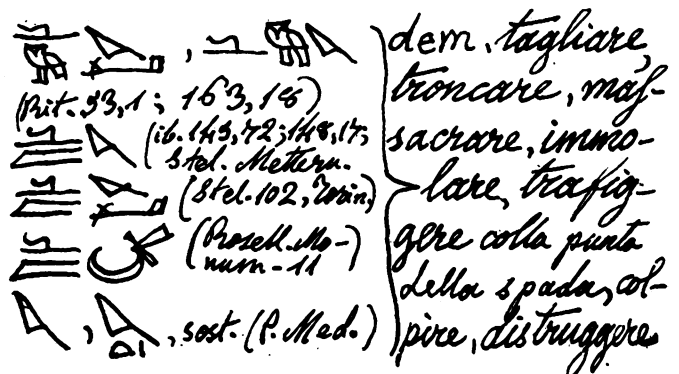 (Rit. 93,1; 163,18)
(ib. 149,72; 148,17;
Stel. Mettern.
(Stel. 102, Torin.)
(Rosell. Mo-
num - 11
, sost. (P. Med.)
dem, tagliare,
troncare, mas-
sacrare, immo-
lare, trafig-
gere colla punta
della spada, col-
pire, distruggere.